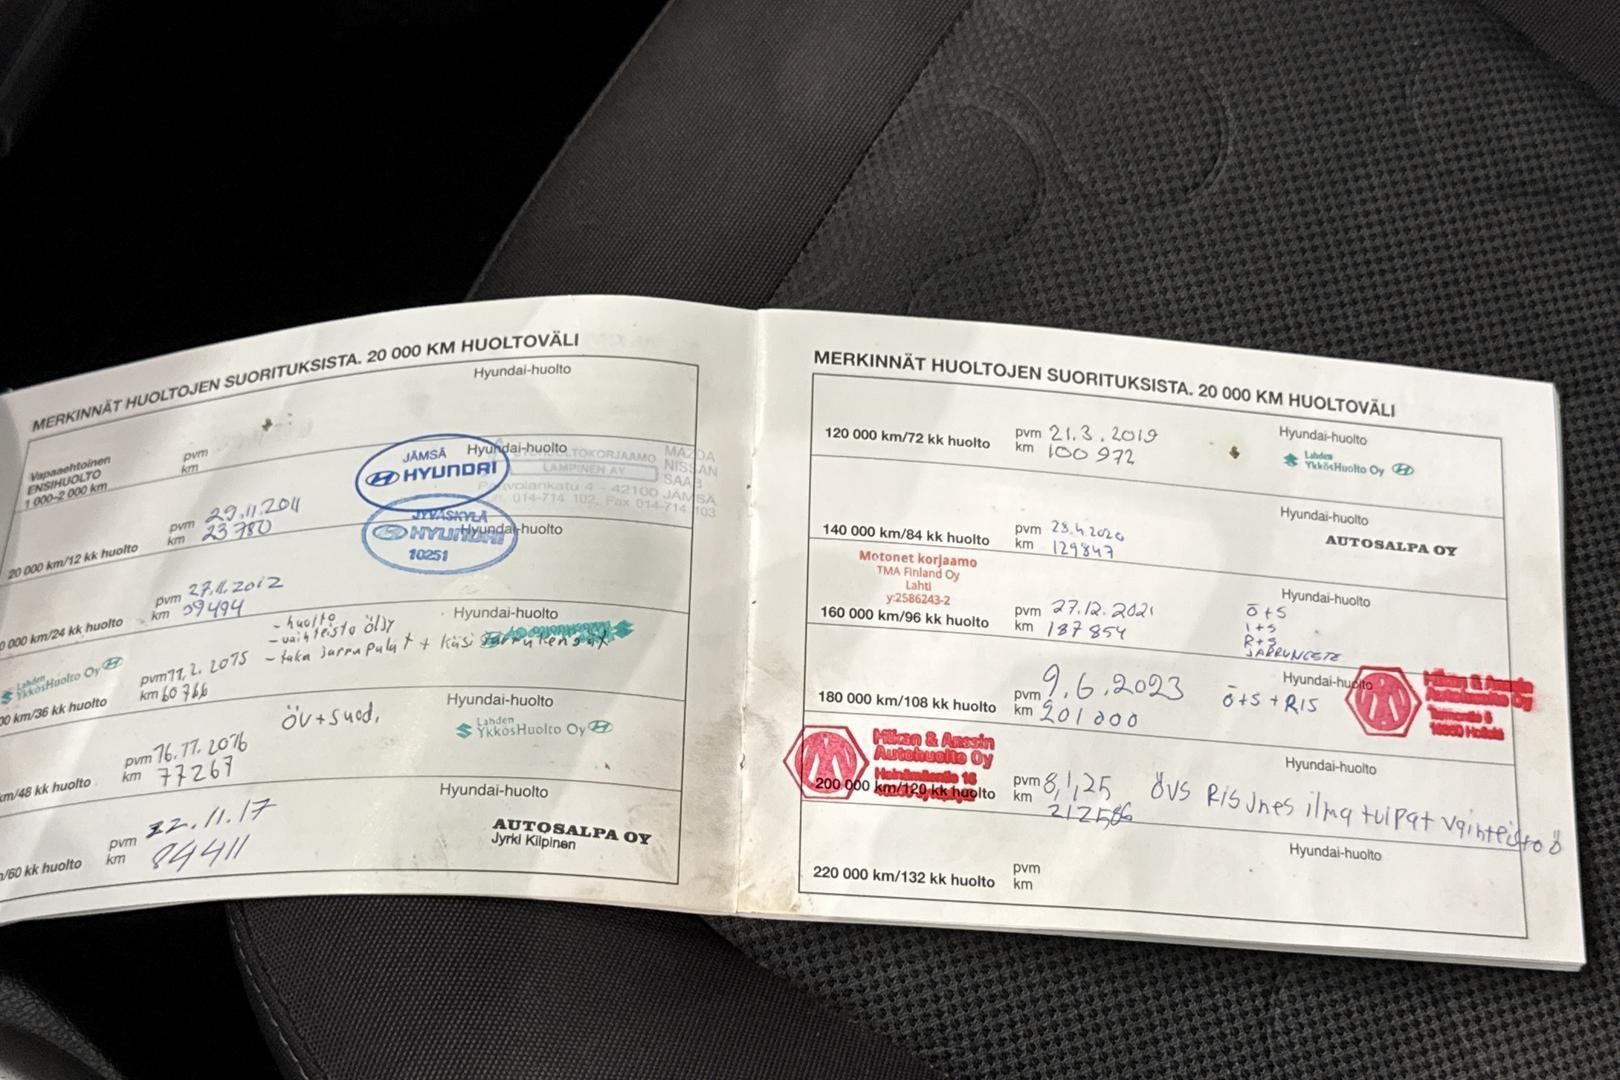 MERKINNÄT HUOLTOJEN SUORITUKSISTA. 20 000 KM HUOLTOVÄLI
Hyundai-huolto
Vapaaehtoinen
ENSIHUOLTO
1 000–2 000 km
pvm
km
JÄMSÄ
HYUNDAI
Hyundai-huolto
LAMPINEN AY
42100 JÄMSÄ
014-714 102, Fax 014-714 103
MAZDA
NISSAN
SAAB
20 000 km/12 kk huolto
pvm 29.11.2011
km 23780
JYVÄSKYLÄ
HYUNDAI
10251
Hyundai-huolto
000 km/24 kk huolto
pvm 27.11.2012
km 39494
Hyundai-huolto
- huolto
- vaihteisto öljy
- taka jarrupalat + käsi
Lahden
YkkösHuolto Oy
00 km/36 kk huolto
pvm 11.2.2015
km 60766
Hyundai-huolto
öv + suod.
Lahden
YkkösHuolto Oy
km/48 kk huolto
pvm 16.11.2016
km 77267
Hyundai-huolto
/60 kk huolto
pvm 22.11.17
km 84411
AUTOSALPA OY
Jyrki Kilpinen
MERKINNÄT HUOLTOJEN SUORITUKSISTA. 20 000 KM HUOLTOVÄLI
120 000 km/72 kk huolto
pvm 21.3.2019
km 100 972
Hyundai-huolto
Lahden
YkkösHuolto Oy
140 000 km/84 kk huolto
pvm 28.4.2020
km 129847
Hyundai-huolto
AUTOSALPA OY
Motonet korjaamo
TMA Finland Oy
Lahti
y:2586243-2
160 000 km/96 kk huolto
pvm 27.12.2021
km 187854
Hyundai-huolto
Ö+S
I+S
R+S
JARRUNESTE
180 000 km/108 kk huolto
pvm 9.6.2023
km 201000
Hyundai-huolto
Ö+S + RIS
Mikan & Anssin
Autohuolto Oy
Mikan & Anssin
Autohuolto Oy
200 000 km/120 kk huolto
pvm 8,1,25
km 212586
Hyundai-huolto
ÖVS RIS Jnes ilma tulpat vaihteisto ö
220 000 km/132 kk huolto
pvm
km
Hyundai-huolto